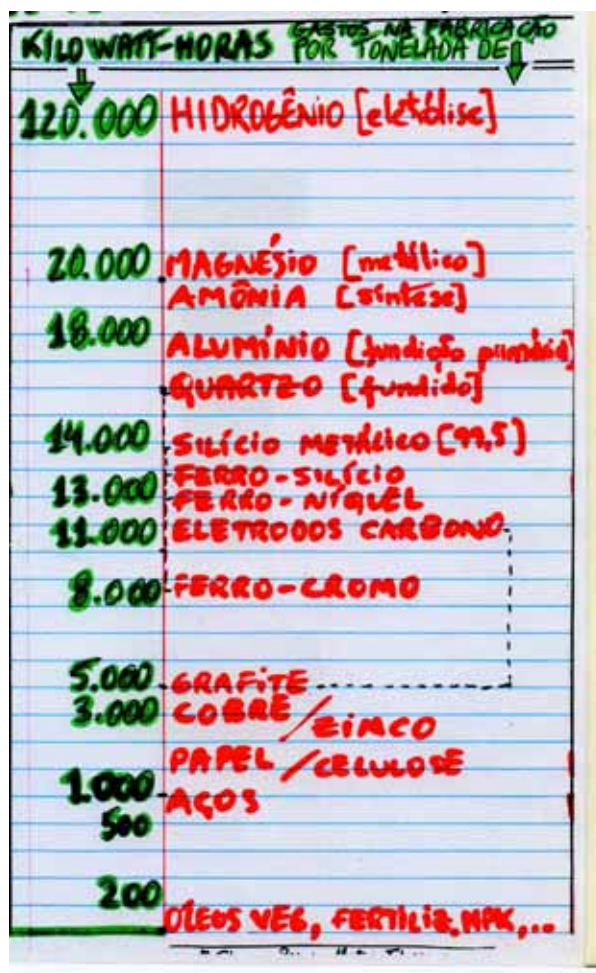 KILOWATT-HORAS GASTOS NA FABRICAÇÃO
POR TONELADA DE
120.000 HIDROGÊNIO [eletrólise]
20.000 MAGNÉSIO [metálico]
AMÔNIA [síntese]
18.000
ALUMÍNIO [fundição primária]
QUARTZO [fundido]
14.000 SILÍCIO METÁLICO [99,5]
FERRO-SILÍCIO
13.000 FERRO-NÍQUEL
11.000 ELETRODOS CARBONO
8.000 FERRO-CROMO
5.000 GRAFITE
3.000 COBRE/ZINCO
PAPEL/CELULOSE
1.000 AÇOS
500
200
ÓLEOS VEG, FERTILIZ. NPK,...